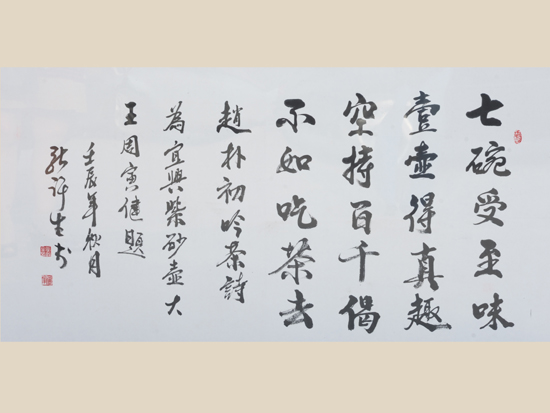 七碗受至味
壹壺得真趣
空持百千偈
不如吃茶去
趙朴初吟茶詩
為宜興紫砂壺大
王周寅健題
壬辰年秋月
許生書